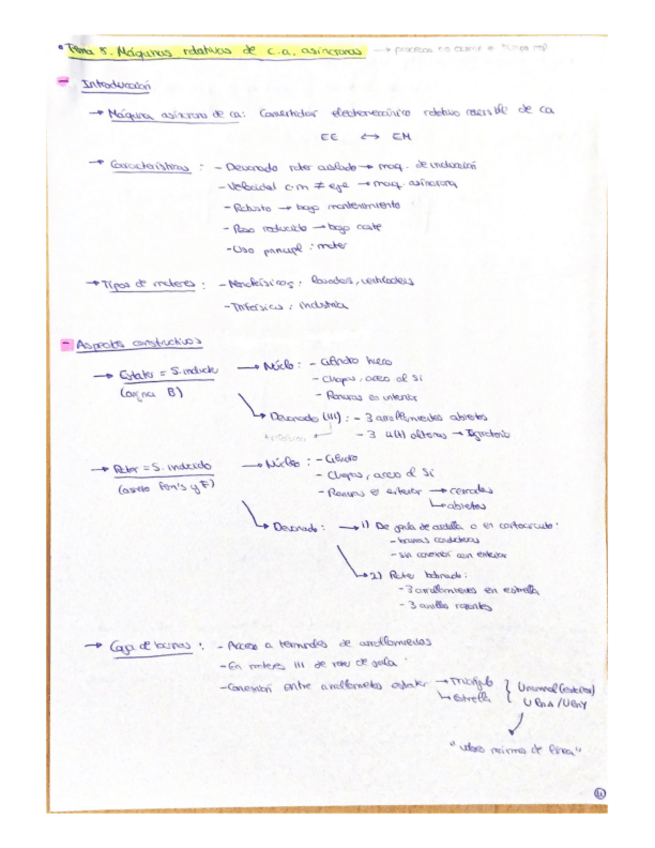 • Tema 8. Máquinas rotativas de c.a. asíncronas →
- Introducción
→ Máquina asíncrona de ca: Convertidor electromecánico rotativo reversible de ca
EE ↔ EM
→ Características : - Devanado rotor aislado → maq. de inducción
- Velocidad c.m ≠ eje → maq. asíncrona
- Robusto → bajo mantenimiento
- Peso reducido → bajo coste
- Uso principal : motor
→ Tipos de motores : - Monofásicos : lavadora, ventiladores
- Trifásicos : industria
- Aspectos constructivos
→ Estator = S. inductor
(origina B)
→ Núcleo : - Cilindro hueco
- Chapas, acero al Si
- Ranuras en interior
→ Devanado (III) : - 3 arrollamientos abiertos
trifásico
- 3 u(t) alternas → Igiratorio
→ Rotor = S. inducido
(aparece fem's y F)
→ Núcleo : - Cilindro
- Chapas, acero al Si
- Ranuras en exterior → cerradas
→ abiertas
→ Devanado : → 1) De jaula de ardilla o en cortocircuito :
- barras conductoras
- sin conexión con exterior
→ 2) Rotor bobinado :
- 3 arrollamientos en estrella
- 3 anillos rozantes
→ Caja de bornas : - Acceso a terminales de arrollamientos
- En motores III de rotor de jaula
- Conexión entre arrollamientos estator → Triángulo
→ Estrella
U nominal
" valores nominales de línea "